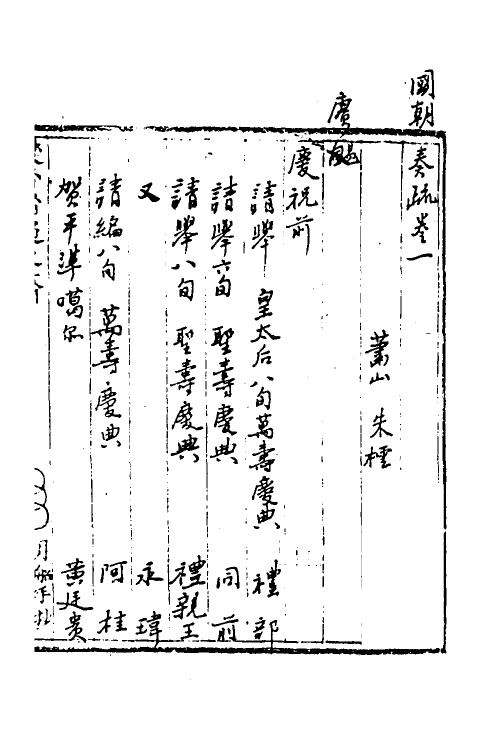 國朝奏疏卷一
蕭山 朱橒
賡颺
慶祝前
請舉 皇太后八旬萬壽慶典 禮部
請舉六旬 聖壽慶典 同前
請舉八旬 聖壽慶典 禮親王
又 永瑋
請編八旬 萬壽慶典 阿桂
賀平準噶尔 黃廷貴